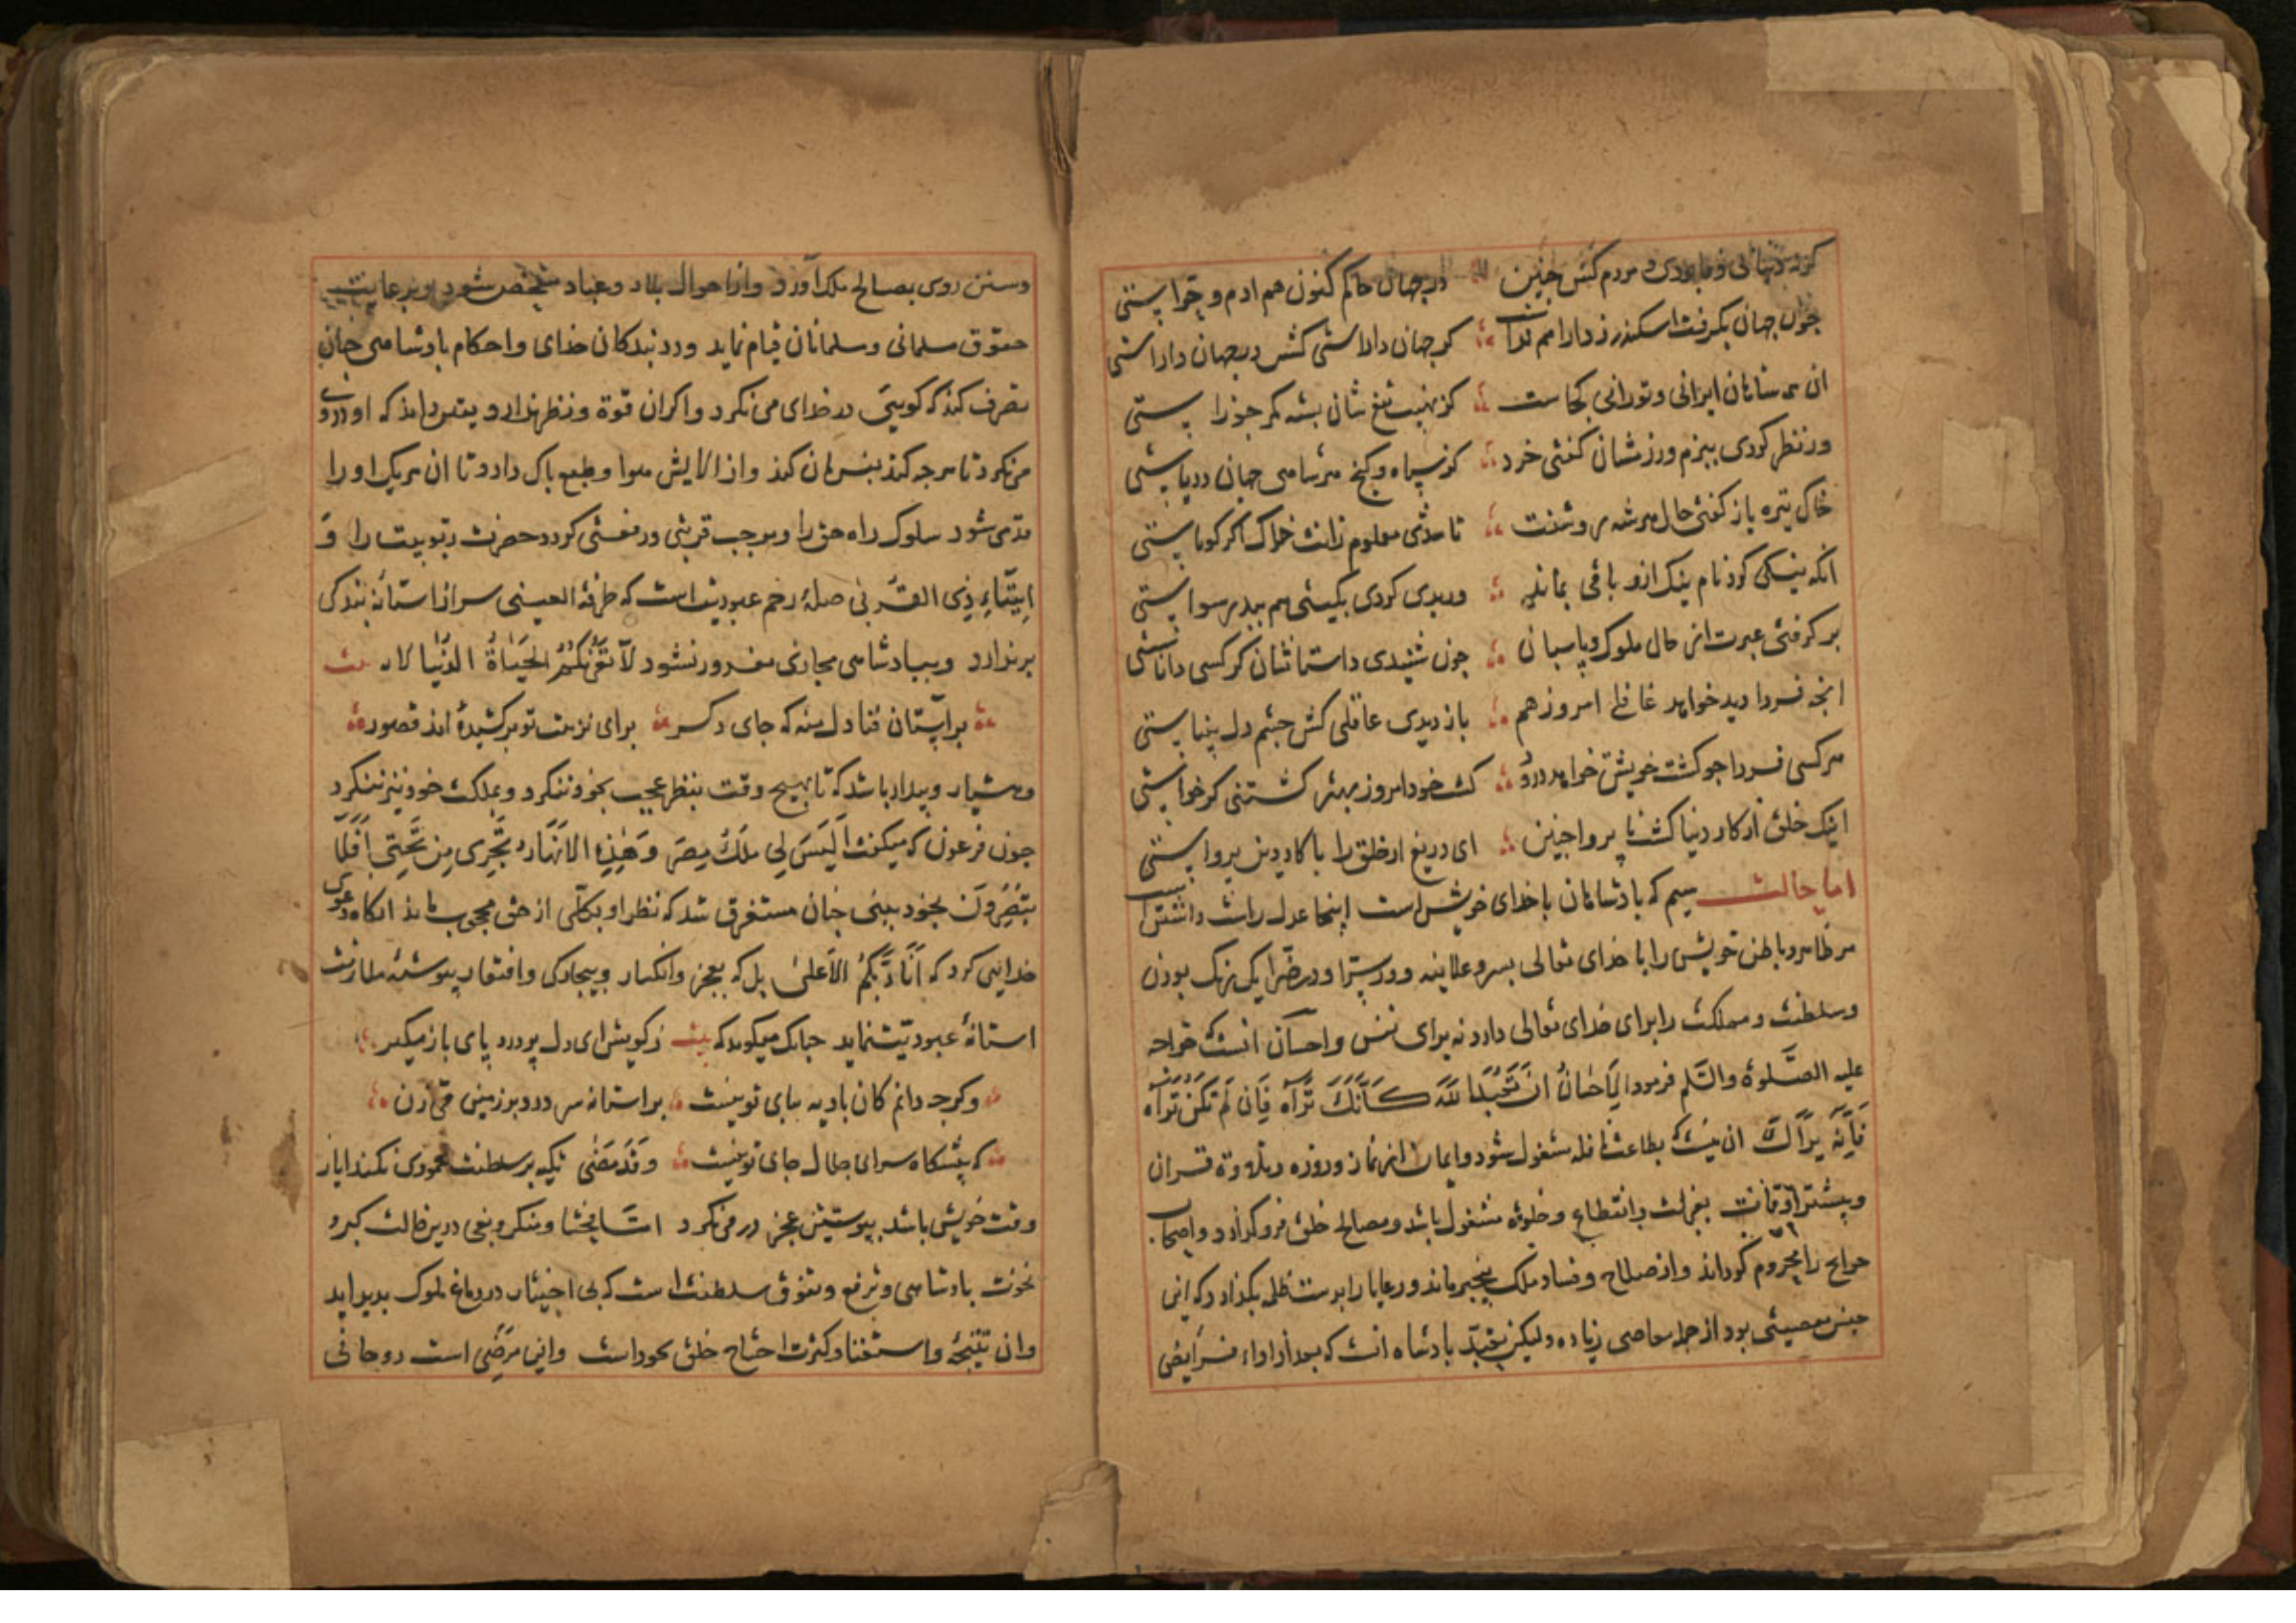 گر در دنیا کس مردم کش چنین در جهان حاکم کنون هم ادم و حوا ستی
جون جهان بکرفت اسکندر ز دارا هم نداشت کر جهان دارا ستی کشتی در جهان دارا ستی
ان همه شاهان ایرانی و تورانی کجاست کز نهیب تیغ شان بسته کمر جوزا ستی
ور نظر کردی ببزم ورزمشان کفتی خرد کز سپاه و کنج هر شاهی جهان دریا ستی
خاک تیره باز کفتی حال هر شه روشنت تا شدی معلوم رانت خاک اکر کویا ستی
انکه نیکی کرد نام نیک ازو باقی بماند ور بدی کردی بکیتی هم ببد رسوا ستی
بر کرفتی عبرت از حال ملوک باستان جون شنیدی داستانشان کر کسی دانا ستی
انچه فردا دید خواهد غافلی امروز هم باز دیدی عاقلی کش جشم دل بینا ستی
هر کسی فردا جو کشت خویش خواهد درود کشت خود امروز بهتر کشتنی کر خواستی
اینک خلق از کار دنیا کشت نا پروا جنین ای دریغ ار خلق را با کار دین پروا ستی
اما حالت سیم که بادشاهان با خدای خویش است اینجا عدل راست داشتن است
مر ظاهر و باطن خویش را با خدای تعالی بسر و علانیه و در سرا و در ضرا یک رنک بودن
وسلطنت و مملکت را برای خدای تعالی دارد نه برای نفس و احسان انست که خواجه
علیه الصلوة والسلم فرمود الاحسان ان تعبد الله کانک تراه فان لم تکن تراه
فانه یراک ان نیست که بطاعت نافله مشغول شود و ایمان از نماز و روزه و تلاوة قران
وبیشتر اوقات بعزلت و انقطاع و خلوة مشغول باشد و مصالح خلق فرو کذارد و اصحاب
حوایج را محروم کرداند و از صلاح و فساد ملک بیخبر ماند و رعایا را بدست ظلمه بکذارد که این
جنس معصیتی بود از جمله معاصی زیاده ولیکن تعبد بادشاه انست که بعد از اداء فرایض
وسنن روی بمصالح ملک اورد و از احوال بلاد و عباد متفحص شود و برعایت
حقوق سلمانی و مسلمانان قیام نماید و در بندکان خدای و احکام بادشاهی جنان
تصرف کند که کویی در خدای می نکرد و اکر ان قوة و نظر ندارد و یقین داند که او در وی
می نکرد تا هر جه کند بفرمان کند و از الایش هوا و طبع باک دارد تا ان هر یک او را
قدمی شود سلوک راه حق را و موجب قربتی و رفعتی کردد حضرت ربوبیت را و
ایتاء ذی القربی صلۀ رحم عبودیت است که طرفة العینی سر از استانۀ بندکی
برندارد و ببادشاهی مجازی مغرور نشود لا تغرنکم الحیاة الدنیا لاد بیت
برآستان فنا دل منه که جای دکر برای نزهت تو برکشیده اند قصور
وهشیار و بیدار باشد که تا بهیچ وقت بنظر عجب بخود ننکرد و بملک خود نیز ننکرد
جون فرعون که میکفت الیس لی ملک مصر وهذه الانهار تجری من تحتی افلا
تبصرون بخود بینی جنان مستغرق شد که نظر او بکلی از حق محجوب ماند انکاه دعوی
خدایی کرد که انا ربکم الاعلی بل که بعجز و انکسار و بیجارکی و افتقار پیوسته ملازمت
استانۀ عبودیت نماید جنانک میکوید که بیت ز کویش ای دل پر درد پای باز مکیر
وکرجه دانم کان بادیه بپای تو نیست بر استانه سر درد بر زمینی می زن
که بیشکاه سرای جلال جای تو نیست و قد مضی تکیه بر سلطنت محمودی نکند ایاز
وقت خویش باشد بپوستین عجز در می نکرد اما فحشا و منکر و بغی درین حالت کبر و
نخوت بادشاهی و ترفع و تفوق سلطنت است که بی اختیار در دماغ ملوک بدید اید
وان نتیجۀ و استغنا و کثرت احتیاج خلق بخود است و این مرضی است روحانی